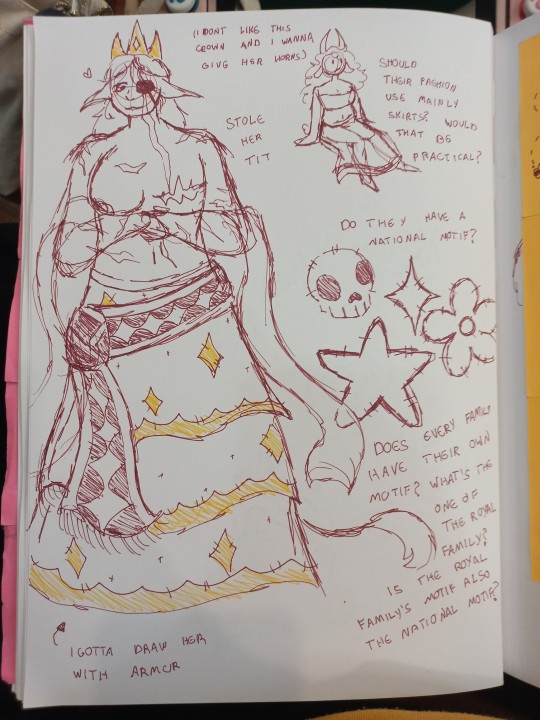 (I DONT LIKE THIS
CROWN AND I WANNA
GIVE HER HORNS)
STOLE
HER
TIT
SHOULD
THEIR FASHION
USE MAINLY
SKIRTS? WOULD
THAT BE
PRACTICAL?
DO THEY HAVE A
NATIONAL MOTIF?
DOES EVERY FAMILY
HAVE THEIR OWN
MOTIF? WHAT'S THE
ONE OF
THE ROYAL
FAMILY?
IS THE ROYAL
FAMILY'S MOTIF ALSO
THE NATIONAL MOTIF?
I GOTTA DRAW HER
WITH ARMOR